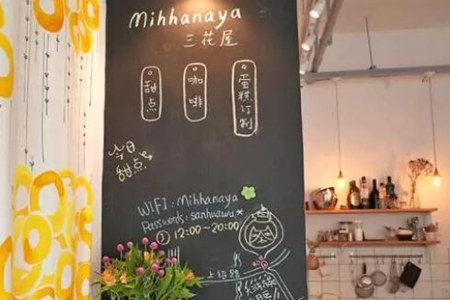 Mihhanaya
三花屋
甜点
咖啡
蛋糕订制
今日
甜点
WiFi : Mihhanaya
Passwords: sanhuawu*
① 12:00~20:00